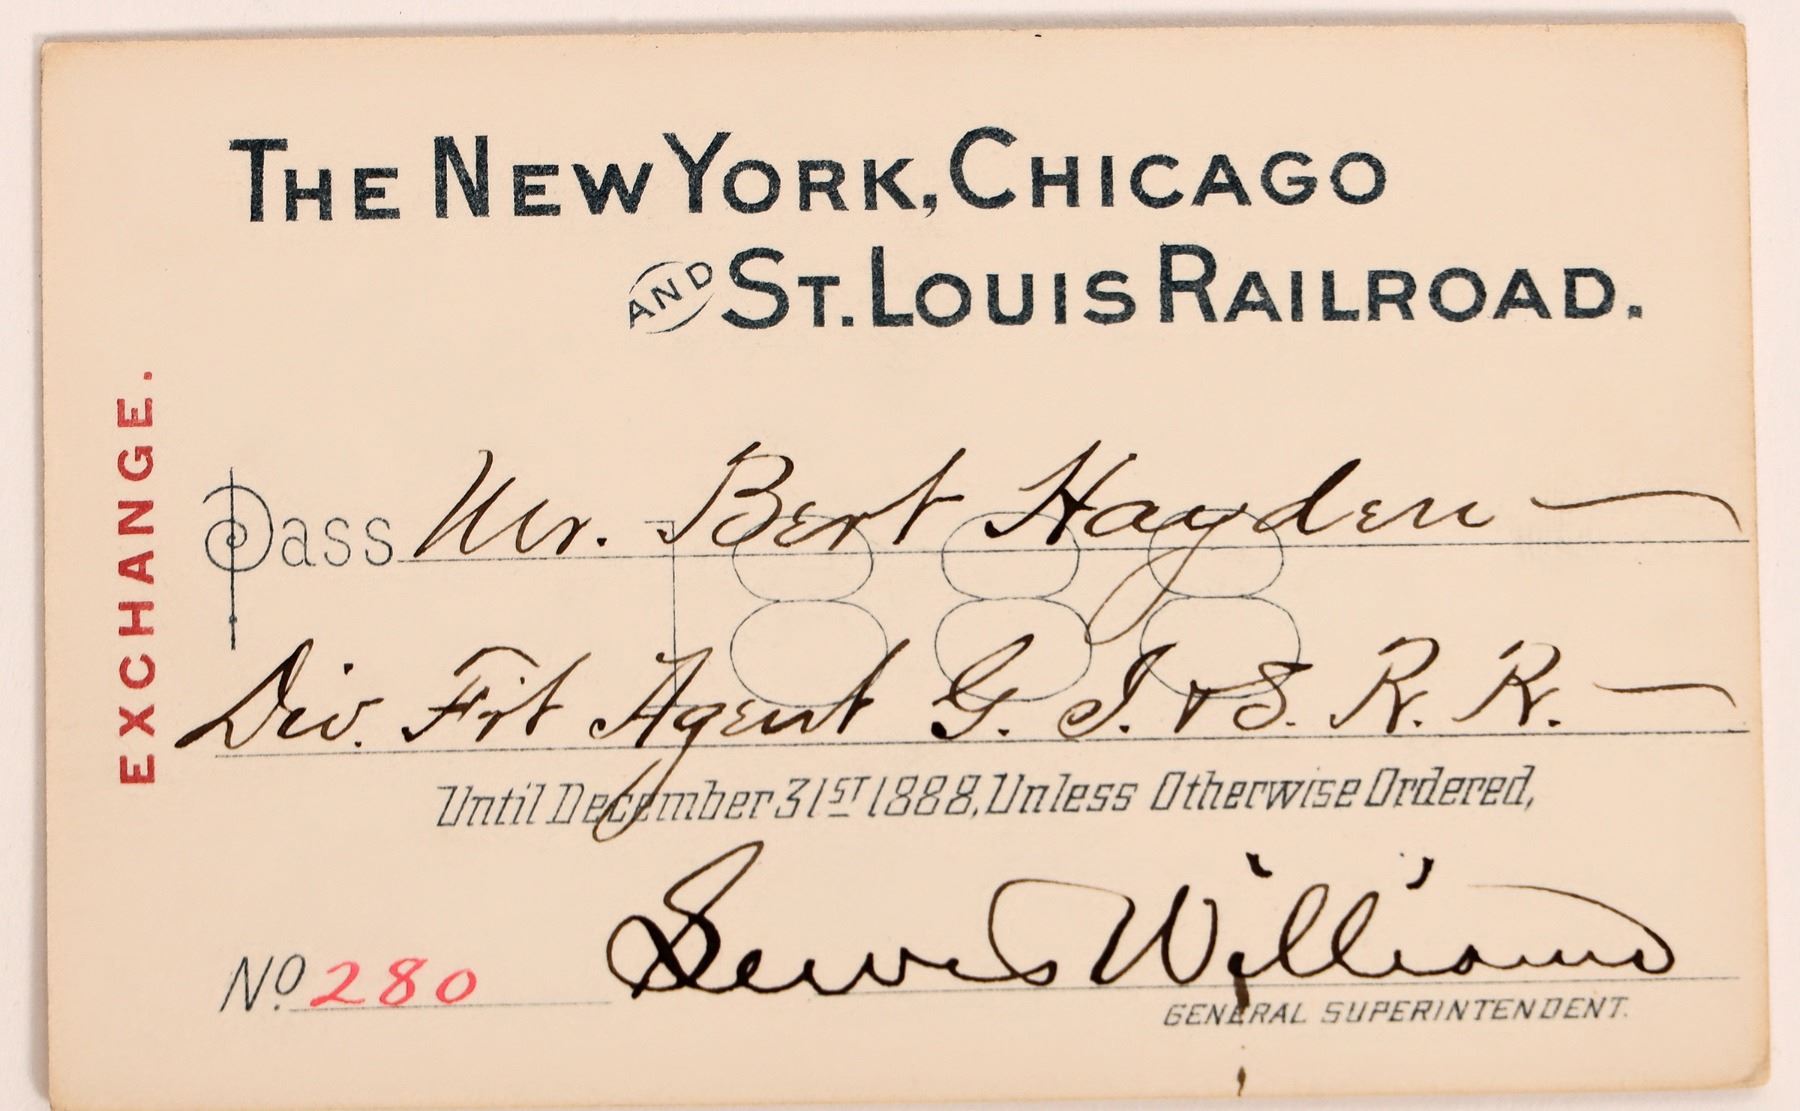 THE NEW YORK, CHICAGO
AND ST. LOUIS RAILROAD.
EXCHANGE.
Pass Mr. Bert Hayden
1888
Div. Frt Agent G. I. & S. R. R.
Until December 31ST 1888, Unless Otherwise Ordered,
Lewis Williams
No 280
GENERAL SUPERINTENDENT.